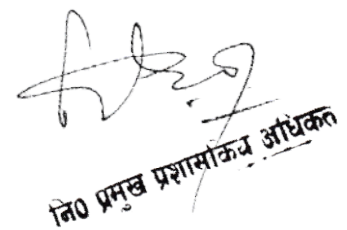 नि0 प्रमुख प्रशासकिय अधिकत